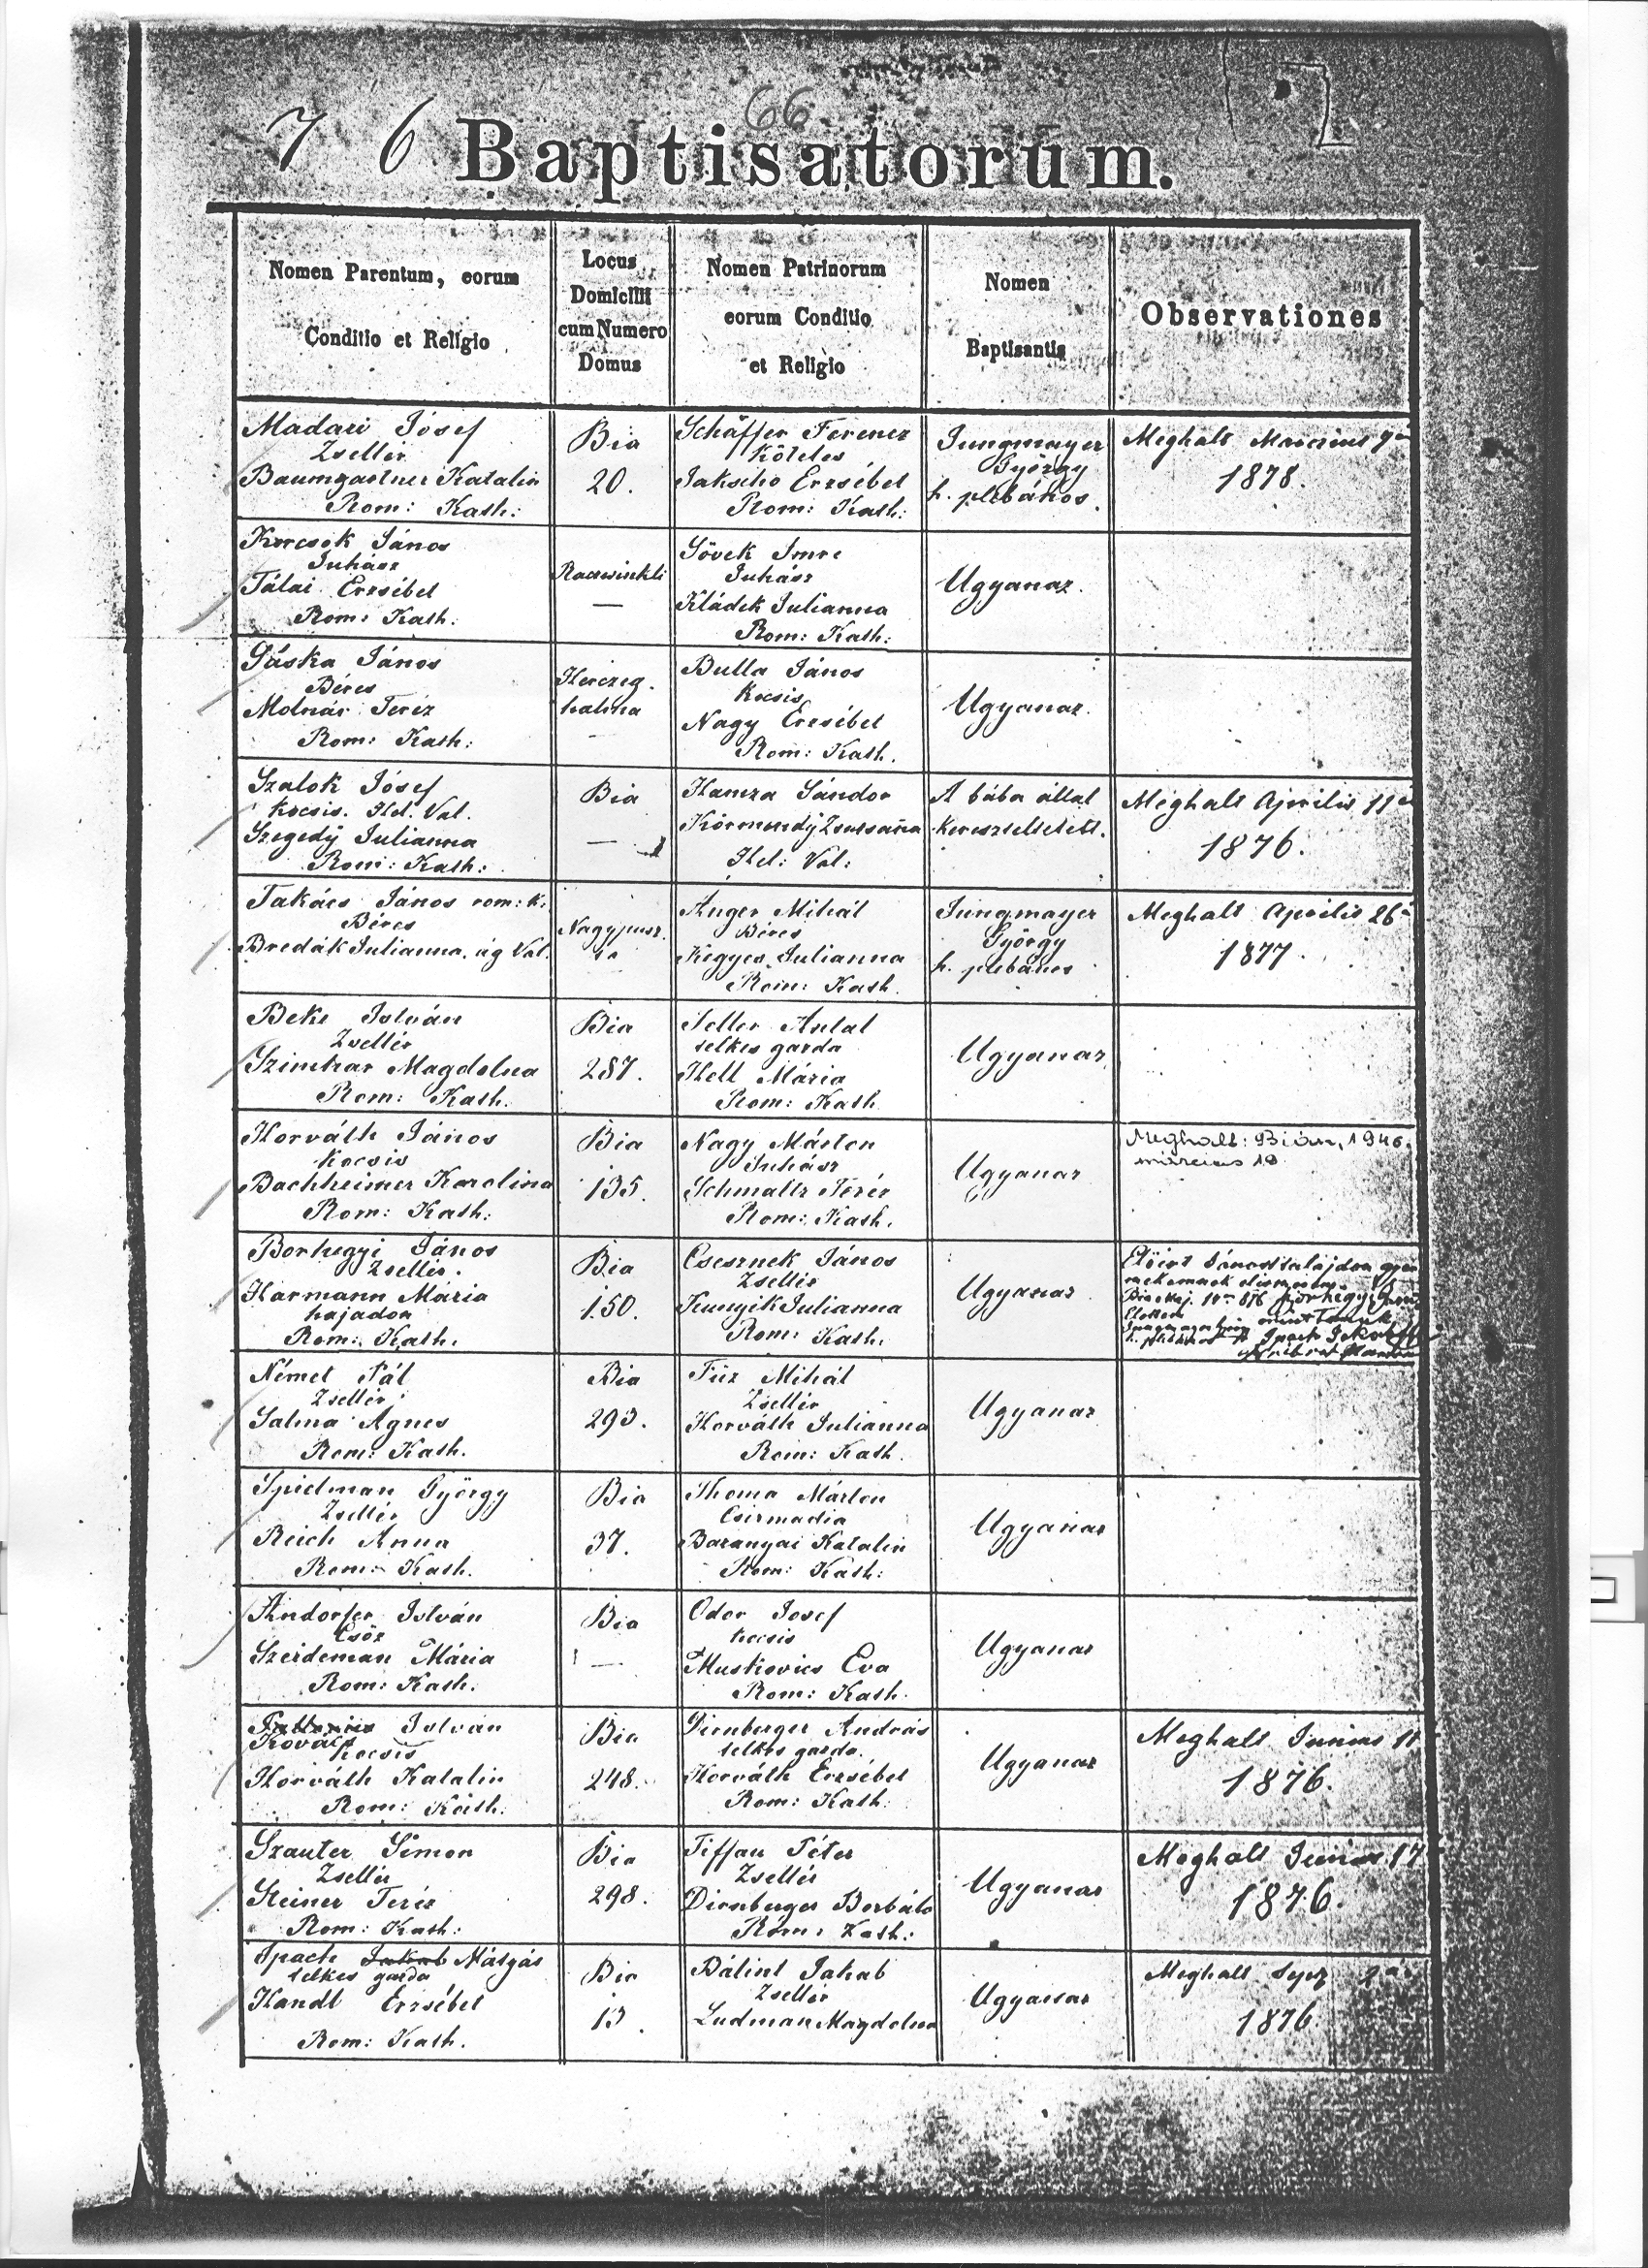 7 6
66
Baptisatorum.
Nomen Parentum, eorum
Conditio et Religio
Locus
Domicilii
cum Numero
Domus
Nomen Patrinorum
eorum Conditio
et Religio
Nomen
Baptisantis
Observationes
Madari Jósef
Zsellér
Baumgartner Katalin
Rom: Kath:
Bia
20.
Schäffer Ferencz
Köteles
Jakscho Erzsébet
Rom: Kath:
Jungmayer
György
h. plebános.
Meghalt Marczius
1878.
Korcsok János
Juhász
Tálai Erzsébet
Rom: Kath:
—
Sövek Imre
Juhász
Kládek Julianna
Rom: Kath:
Ugyanaz.
Gáska János
Béres
Molnár Teréz
Rom: Kath:
Herczeg-
halma
Bulla János
Kocsis
Nagy Erzsébet
Rom: Kath.
Ugyanaz.
Szalok Jósef
Kocsis. Hel. Val.
Szegedÿ Julianna
Rom: Kath:
Bia
—
Hamza Sándor
Körmendÿ Zsuzsaňa
Hel: Val:
A bába által
kereszteltetett.
Meghalt Április 11én
1876.
Takács János rom: k.
Béres
Bredák Julianna, ág Val.
Nagypusz-
ta
Anger Mihál
Béres
Kegyes Julianna
Rom: Kath.
Jungmayer
György
h. plebános
Meghalt Április 26
1877.
Beke István
Zsellér
Szimhar Magdolna
Rom: Kath.
Bia
287.
Teller Antal
telkes gazda
Hell Mária
Rom: Kath
Ugyanaz
Horváth János
Kocsis
Bachheimer Karolina
Rom: Kath:
Bia
135.
Nagy Márton
Juhász
Schmaltz Teréz
Rom: Kath.
Ugyanaz
Meghalt: Bián, 1946.
március 18.
Borhegyi János
Zsellér.
Harmann Mária
hajadon
Rom: Kath.
Bia
150.
Csesznek János
Zsellér
Julianna
Rom: Kath.
Ugyanaz
Előirt Jánost tulajdon gyer
mekemnek elismerem.
Bia Maj. 14én 876 Borhegyi János
Előttem mint Tanuk
h. plebános
Német Pál
Zsellér
Salma Ágnes
Rom: Kath.
Bia
293.
Füz Mihál
Zsellér
Horváth Julianna
Rom: Kath.
Ugyanaz
Spidman György
Zsellér
Reich Anna
Rom: Kath.
Bia
37.
Thoma Márton
Csizmadia
Baranyai Katalin
Rom: Kath:
Ugyanaz
Andorfer István
Csősz
Szeideman Mária
Rom: Kath.
Bia
—
Odor Josef
kocsis
Muskovics Éva
Rom: Kath.
Ugyanaz
István
Kovács
Kocsis
Horváth Katalin
Rom: Kath:
Bia
248.
Dirnberger András
telkes gazda.
Horváth Erzsébet
Rom: Kath.
Ugyanaz
Meghalt Junius 11
1876.
Szauter Simon
Zsellér
Steiner Teréz
Rom: Kath:
Bia
298.
Tiffan Péter
Zsellér
Dirnberger Borbála
Rom: Kath:
Ugyanaz
Meghalt Junius 17
1876.
Spach Jakab Mátyás
telkes gazda
Handl Erzsébet
Rom: Kath.
Bia
13.
Bálint Jakab
Zsellér
Ludman Magdolna
Ugyanaz
Meghalt Sept 2án
1876.